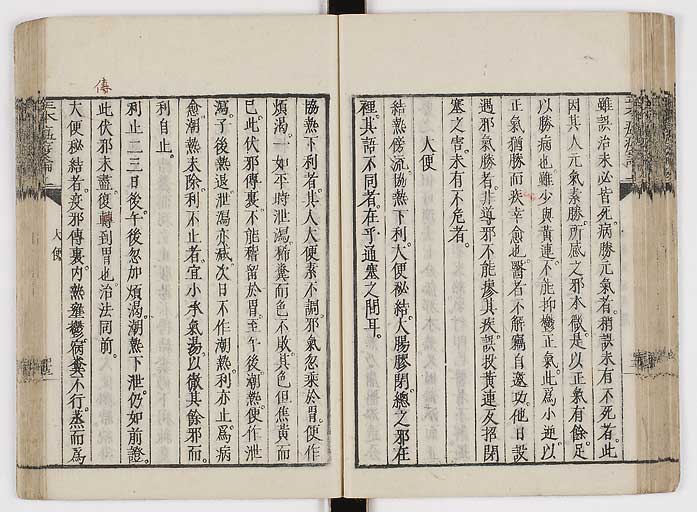 雖誤治未必皆死病勝元氣者稍誤未有不死者此
因其人元氣素勝所感之邪本微是以正氣有餘足
以勝病也雖少與黃連不能抑鬱正氣此爲小逆以
正氣猶勝而疾幸愈也醫者不解竊自邀功他日設
遇邪氣勝者非導邪不能瘳其疾誤投黃連反招閉
塞之害未有不危者
大便
結熱傍流協熱下利大便秘結大腸膠閉總之邪在
裡其語不同者在乎通塞之間耳
協熱下利者其人大便素不調邪氣忽乘於胃便作
煩渴一如平時泄瀉稀糞而色不敗其色但焦黃而
已此伏邪傳裏不能稽留於胃至午後潮熱便作泄
瀉子後熱退泄瀉亦减次日不作潮熱利亦止爲病
愈潮熱未除利不止者宜小承氣湯以徹其餘邪而
利自止
利止二三日後午後忽加煩渴潮熱下泄仍如前證
此伏邪未盡復轉到胃也治法同前
大便秘結者疫邪傳裏内熱壅鬱宿糞不行蒸而爲
大便
傳